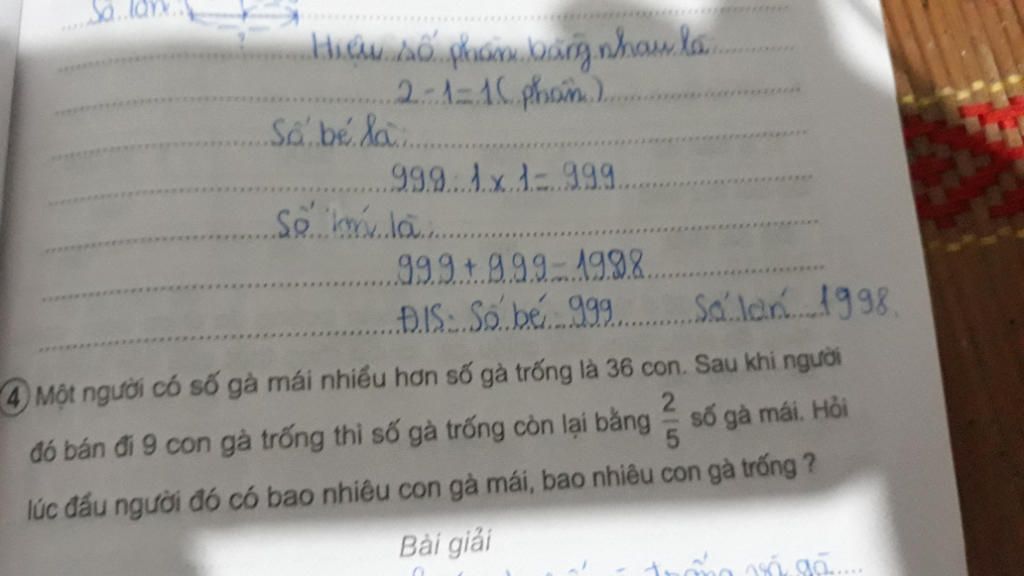 Số lớn:
?
Hiệu số phần bằng nhau là
2 - 1 = 1 ( phần )
Số bé là:
999 : 1 x 1 = 999
Số lớn là:
999 + 999 = 1998
Đ/S: Số bé: 999 Số lớn: 1998.
4 Một người có số gà mái nhiều hơn số gà trống là 36 con. Sau khi người
đó bán đi 9 con gà trống thì số gà trống còn lại bằng 2/5 số gà mái. Hỏi
lúc đầu người đó có bao nhiêu con gà mái, bao nhiêu con gà trống ?
Bài giải
trống và gà